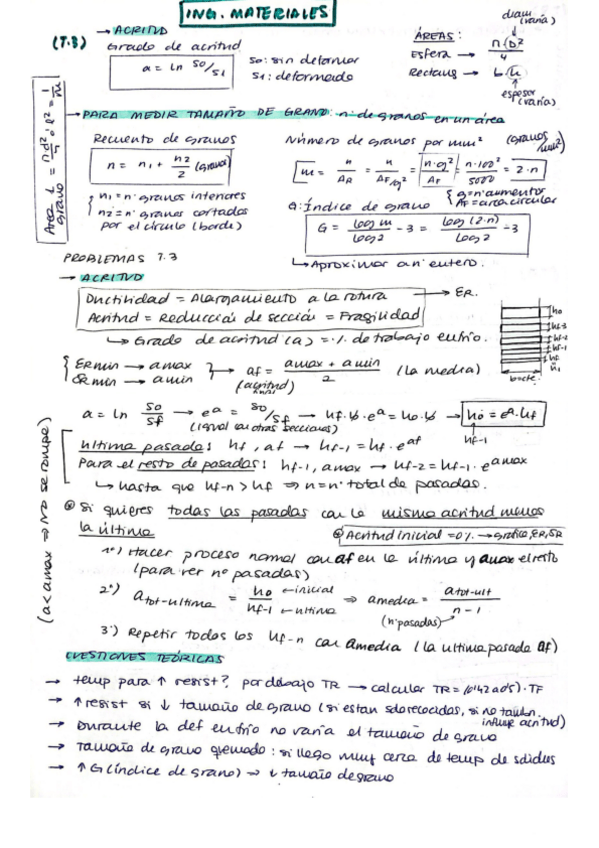 ING. MATERIALES
(T.3) → ACRITUD
Grado de acritud
a = ln S0/S1
S0: sin deformar
S1: deformado
ÁREAS:
diam (varía)
Esfera → π·D²/4
Rectang → b·h
espesor (varía)
Area 1 grano = π·d²/4 o l² = 1/m
→ PARA MEDIR TAMAÑO DE GRANO: nº de granos en un área
Recuento de granos
n = n1 + n2/2 (granos)
n1 = nº granos interiores
n2 = nº granos cortados
por el círculo (borde)
Número de granos por mm² (granos/mm²)
m = n/AR = n/AF/g² = n·g²/AF = n·100²/5000 = 2·n
g = nº aumentos
AF = area circular
G: Índice de grano
G = log m/log 2 - 3 = log (2·n)/log 2 - 3
↳ Aproximar a nº entero.
PROBLEMAS T.3
→ ACRITUD
Ductilidad = Alargamiento a la rotura → ER.
Acritud = Reducción de sección = Fragilidad
↳ Grado de acritud (a) = % de trabajo en frío.
h0
hf-3
hf-2
hf-1
hf
b=cte.
ERmin → amax
SRmin → amin
→ af = amax + amin / 2 (la media)
(acritud final)
a = ln S0/Sf → e^a = S0/Sf → hf·b·e^a = h0·b → h0 = e^a·hf
(igual en otras secciones)
hf-1
(a<amax ⇒ No se rompe)
última pasada: hf, af → hf-1 = hf·e^af
Para el resto de pasadas: hf-1, amax → hf-2 = hf-1·e^amax
↳ hasta que hf-n > h0 ⇒ n = nº total de pasadas.
@ Si quieres todas las pasadas con la misma acritud menos
la última
@ Acritud inicial = 0% → grafica, ER, SR
1º) Hacer proceso normal con af en la última y amax el resto
(para ver nº pasadas)
2º) atot-ultima = h0 ← inicial / hf-1 ← ultima ⇒ amedia = atot-ult / n-1
(nº pasadas)
3º) Repetir todos los hf-n con amedia (la ultima pasada af)
CUESTIONES TEÓRICAS
→ temp para ↑ resist?, por debajo TR → calcular TR = (0'4 2 a 0'5)·TF
→ ↑ resist si ↓ tamaño de grano (si estan solo recocidas, si no tambn. influye acritud)
→ Durante la def en frío no varía el tamaño de grano
→ Tamaño de grano quemado: si llego muy cerca de temp de solidus
→ ↑ G (índice de grano) → ↓ tamaño de grano